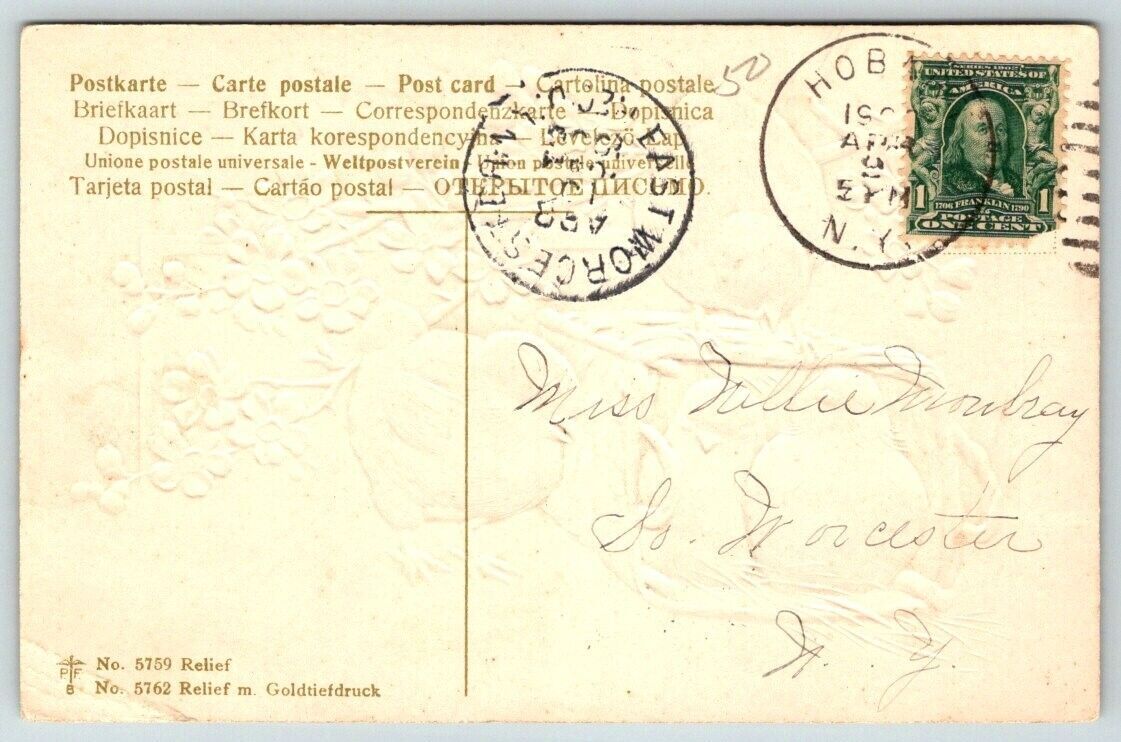 Postkarte — Carte postale — Post card — Cartolina postale
Briefkaart — Brefkort — Correspondenzkarte — Dopisnica
Dopisnice — Karta korespondencyjna — Levelező-Lap
Unione postale universale - Weltpostverein - Union postale universelle
Tarjeta postal — Cartão postal — ОТКРЫТОЕ ПИСЬМО.
50
EAST WORCESTER N.Y.
APR
HOBART
APR
9
5 PM
N.Y.
SERIES 1902
UNITED STATES OF
AMERICA
1706 FRANKLIN 1790
1 POSTAGE 1
ONE CENT
Miss Nellie Moulray
So. Worcester
N. Y.
P F
B
No. 5759 Relief
No. 5762 Relief m. Goldtiefdruck